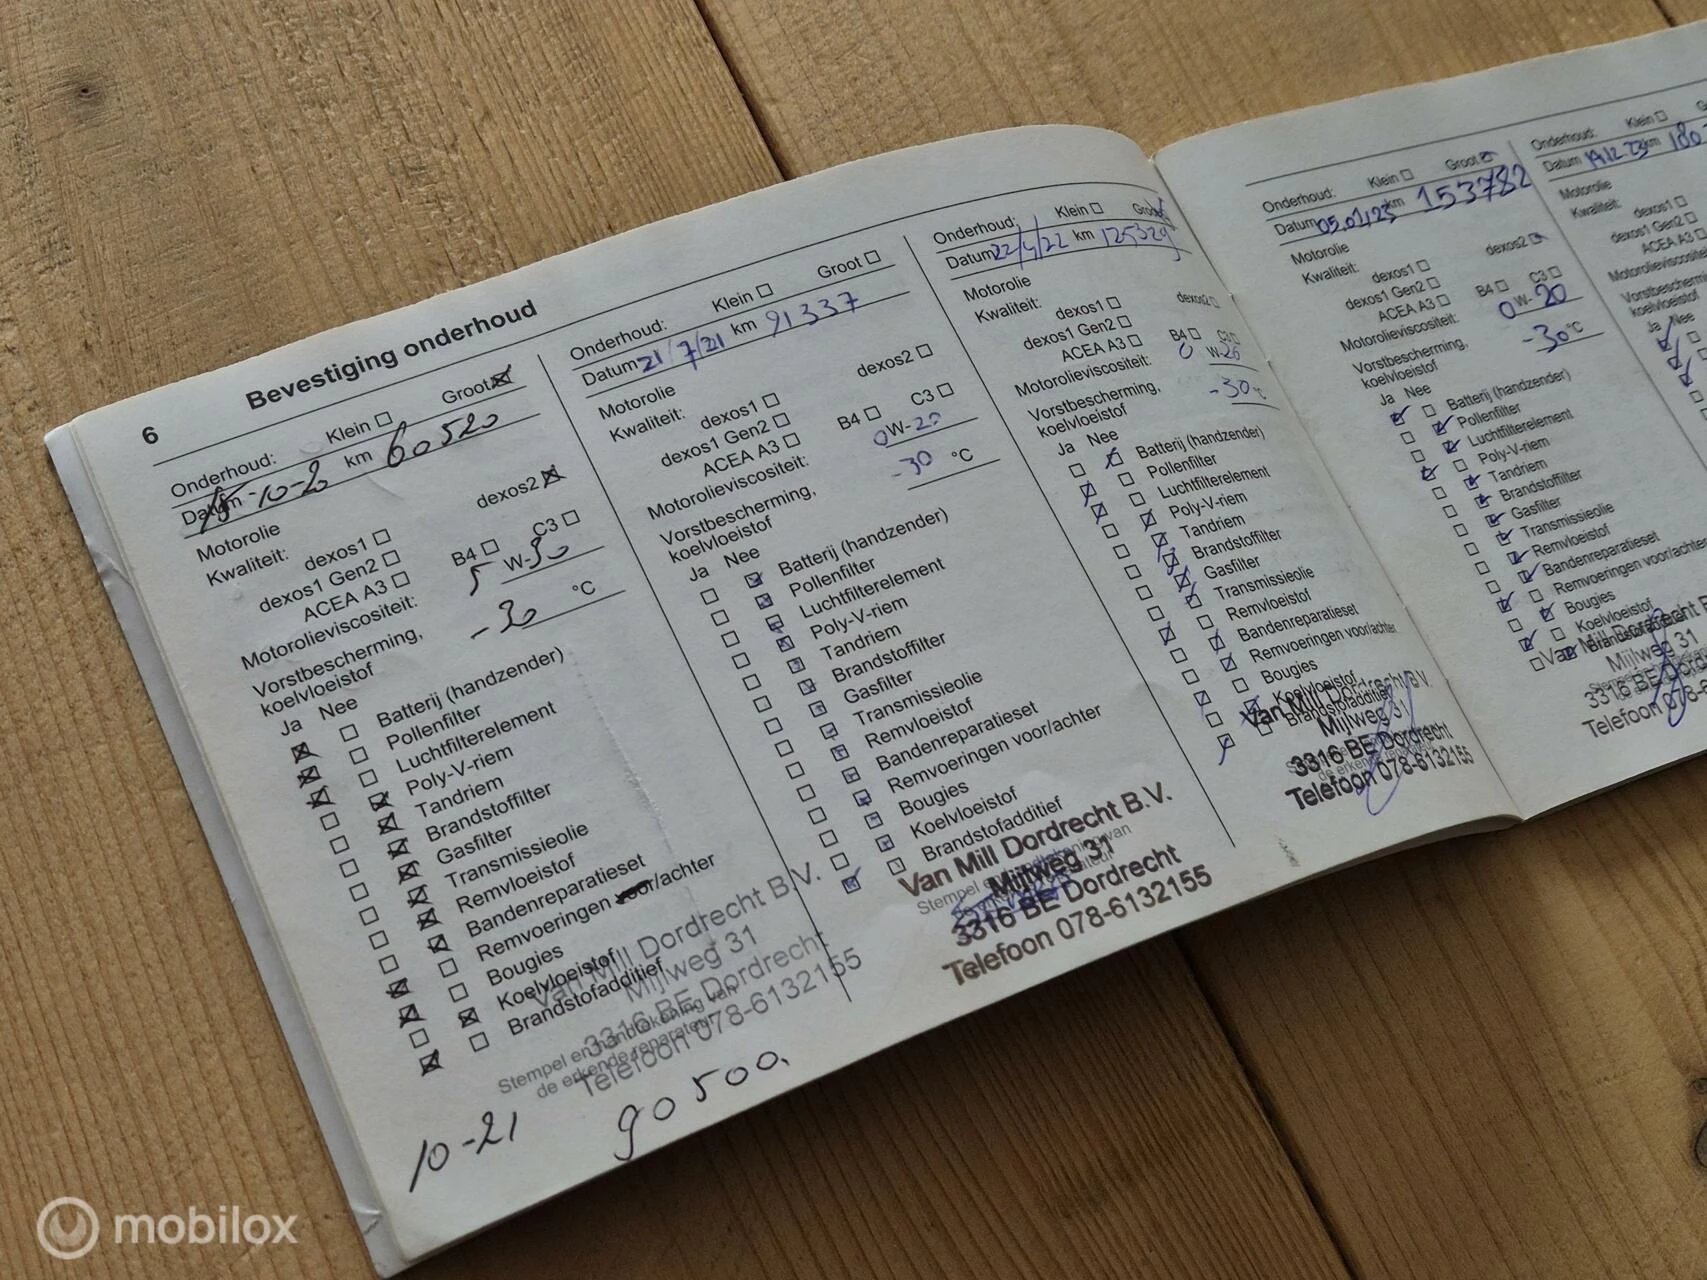 6
Bevestiging onderhoud
Onderhoud: Klein Groot
Datum 15-10-20 km 60520
Motorolie
Kwaliteit: dexos1 dexos2
dexos1 Gen2
ACEA A3 B4 C3
Motorolieviscositeit: 5 W-30
Vorstbescherming,
koelvloeistof -30 °C
Ja Nee
Batterij (handzender)
Pollenfilter
Luchtfilterelement
Poly-V-riem
Tandriem
Brandstoffilter
Gasfilter
Transmissieolie
Remvloeistof
Bandenreparatieset
Remvoeringen voor/achter
Bougies
Koelvloeistof
Brandstofadditief
Van Mill Dordrecht B.V.
Mijlweg 31
3316 BE Dordrecht
Telefoon 078-6132155
Stempel en handtekening van
de erkende reparateur
10-21 90500,
Onderhoud: Klein Groot
Datum 21/7/21 km 91337
Motorolie
Kwaliteit: dexos1 dexos2
dexos1 Gen2
ACEA A3 B4 C3
Motorolieviscositeit: 0W-20
Vorstbescherming,
koelvloeistof -30 °C
Ja Nee
Batterij (handzender)
Pollenfilter
Luchtfilterelement
Poly-V-riem
Tandriem
Brandstoffilter
Gasfilter
Transmissieolie
Remvloeistof
Bandenreparatieset
Remvoeringen voor/achter
Bougies
Koelvloeistof
Brandstofadditief
Van Mill Dordrecht B.V.
Mijlweg 31
3316 BE Dordrecht
Telefoon 078-6132155
Onderhoud: Klein Groot
Datum 22/4/22 km 125329
Motorolie
Kwaliteit: dexos1 dexos2
dexos1 Gen2
ACEA A3 B4 C3
Motorolieviscositeit: 0 W-20
Vorstbescherming,
koelvloeistof -30 °C
Ja Nee
Batterij (handzender)
Pollenfilter
Luchtfilterelement
Poly-V-riem
Tandriem
Brandstoffilter
Gasfilter
Transmissieolie
Remvloeistof
Bandenreparatieset
Remvoeringen voor/achter
Bougies
Koelvloeistof
Brandstofadditief
Van Mill Dordrecht B.V.
Mijlweg 31
3316 BE Dordrecht
Telefoon 078-6132155
Onderhoud: Klein Groot
Datum 05.01.23 km 153782
Motorolie
Kwaliteit: dexos1 dexos2
dexos1 Gen2
ACEA A3 B4 C3
Motorolieviscositeit: 0 W-20
Vorstbescherming,
koelvloeistof -30 °C
Ja Nee
Batterij (handzender)
Pollenfilter
Luchtfilterelement
Poly-V-riem
Tandriem
Brandstoffilter
Gasfilter
Transmissieolie
Remvloeistof
Bandenreparatieset
Remvoeringen voor/achter
Bougies
Koelvloeistof
Brandstofadditief
Van Mill Dordrecht
Mijlweg 31
3316 BE
Telefoon 078-6
Onderhoud: Klein
Datum km 180
Motorolie
Kwaliteit: dexos1
dexos1 Gen2
ACEA A3
Ja Nee
mobilox